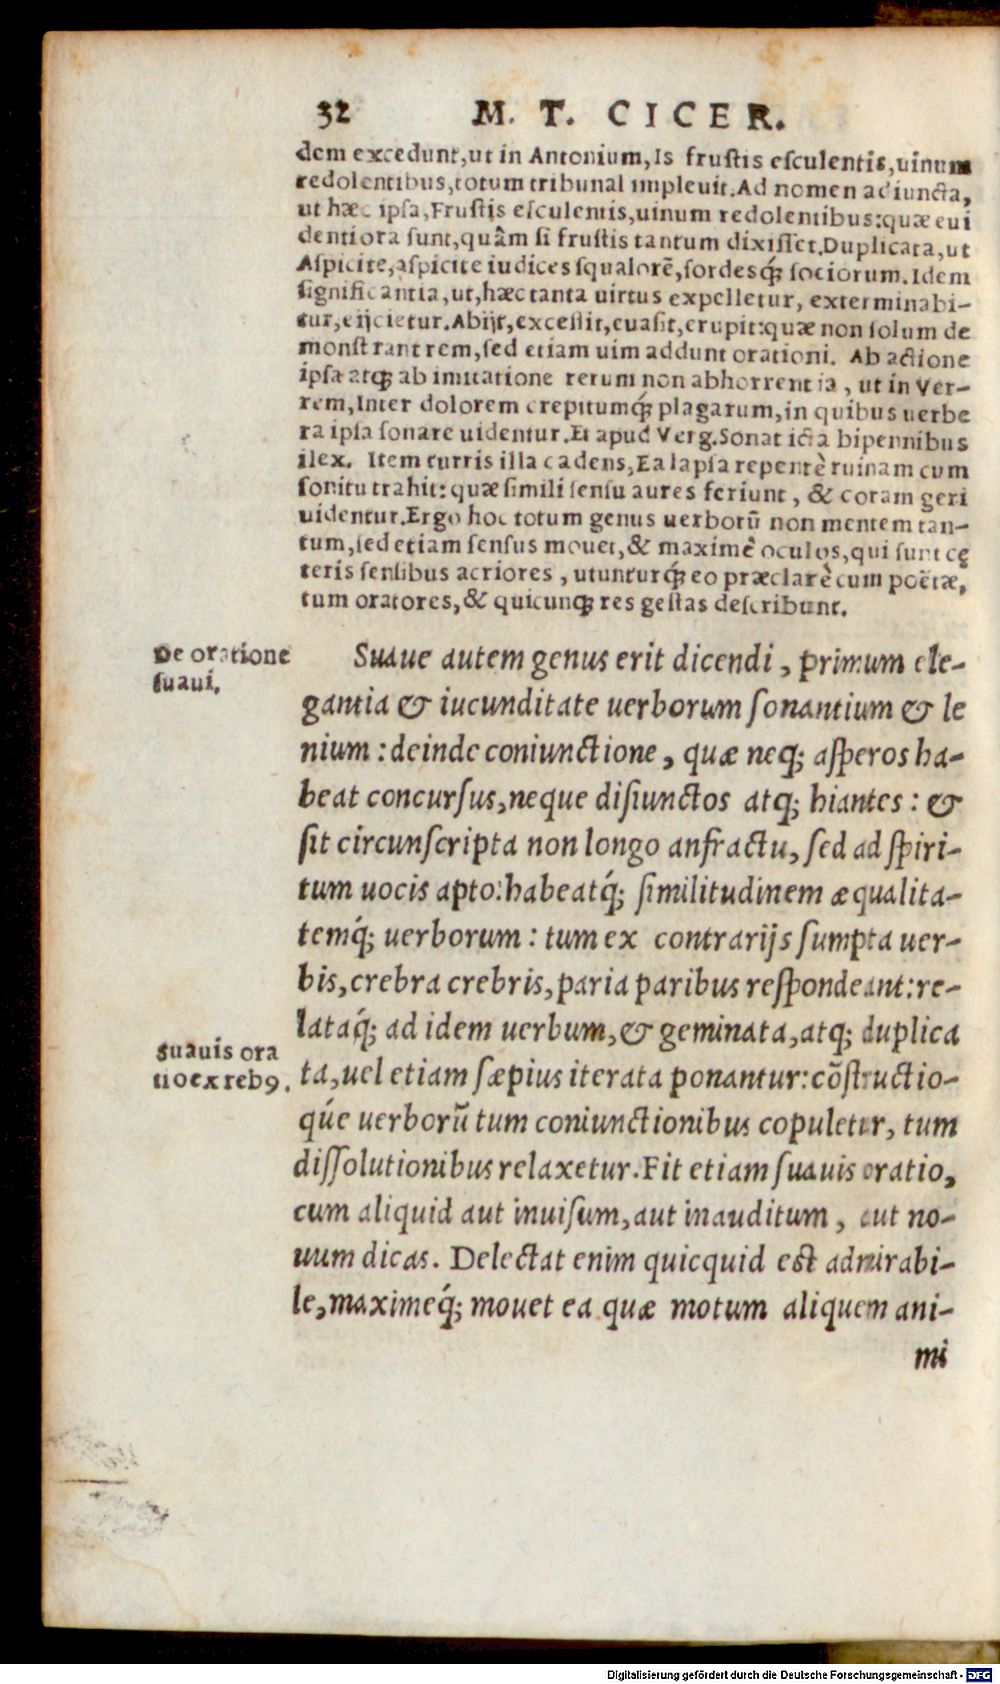 32 M. T. CICER.
dem excedunt,ut in Antonium,Is frustis esculentis,uinum
redolentibus,totum tribunal impleuit.Ad nomen adiuncta,
ut hæc ipsa,Frustis esculentis,uinum redolentibus:quæ eui
dentiora sunt,quàm si frustis tantum dixisset.Duplicata,ut
Aspicite,aspicite iudices squalorē,sordesq́; sociorum.Idem
significantia,ut,hæc tanta uirtus expelletur, exterminabi-
tur,eijcietur.Abijt,excessit,euasit,erupit:quæ non solum de
monstrant rem,sed etiam uim addunt orationi. Ab actione
ipsa atq; ab imitatione rerum non abhorrentia, ut in Ver-
rem,Inter dolorem crepitumq́; plagarum,in quibus uerbe
ra ipsa sonare uidentur.Et apud Verg.Sonat icta bipennibus
ilex. Item turris illa cadens,Ea lapsa repentè ruinam cum
sonitu trahit:quæ simili sensu aures feriunt, & coram geri
uidentur.Ergo hoc totum genus uerborū non mentem tan-
tum,sed etiam sensus mouet,& maximè oculos,qui sunt cę
teris sensibus acriores, utunturq́; eo præclarè cum poëtæ,
tum oratores,& quicunq; res gestas describunt.
De oratione
suaui.
Suaue autem genus erit dicendi, primum ele-
gantia & iucunditate uerborum sonantium & le
nium: deinde coniunctione, quæ neq; asperos ha-
beat concursus,neque disiunctos atq; hiantes: &
sit circunscripta non longo anfractu, sed ad spiri-
tum uocis apto:habeatq́; similitudinem æqualita-
temq́; uerborum: tum ex contrarijs sumpta uer-
bis,crebra crebris,paria paribus respondeant:re-
lataq́; ad idem uerbum,& geminata,atq; duplica
Suauis ora
tio ex reb9.
ta,uel etiam sæpius iterata ponantur:cōstructio-
q́ue uerborū tum coniunctionibus copuletur, tum
dissolutionibus relaxetur.Fit etiam suauis oratio,
cum aliquid aut inuisum,aut inauditum, aut no-
uum dicas. Delectat enim quicquid est admirabi-
le,maximeq́; mouet ea quæ motum aliquem ani-
mi
Digitalisierung gefördert durch die Deutsche Forschungsgemeinschaft - DFG